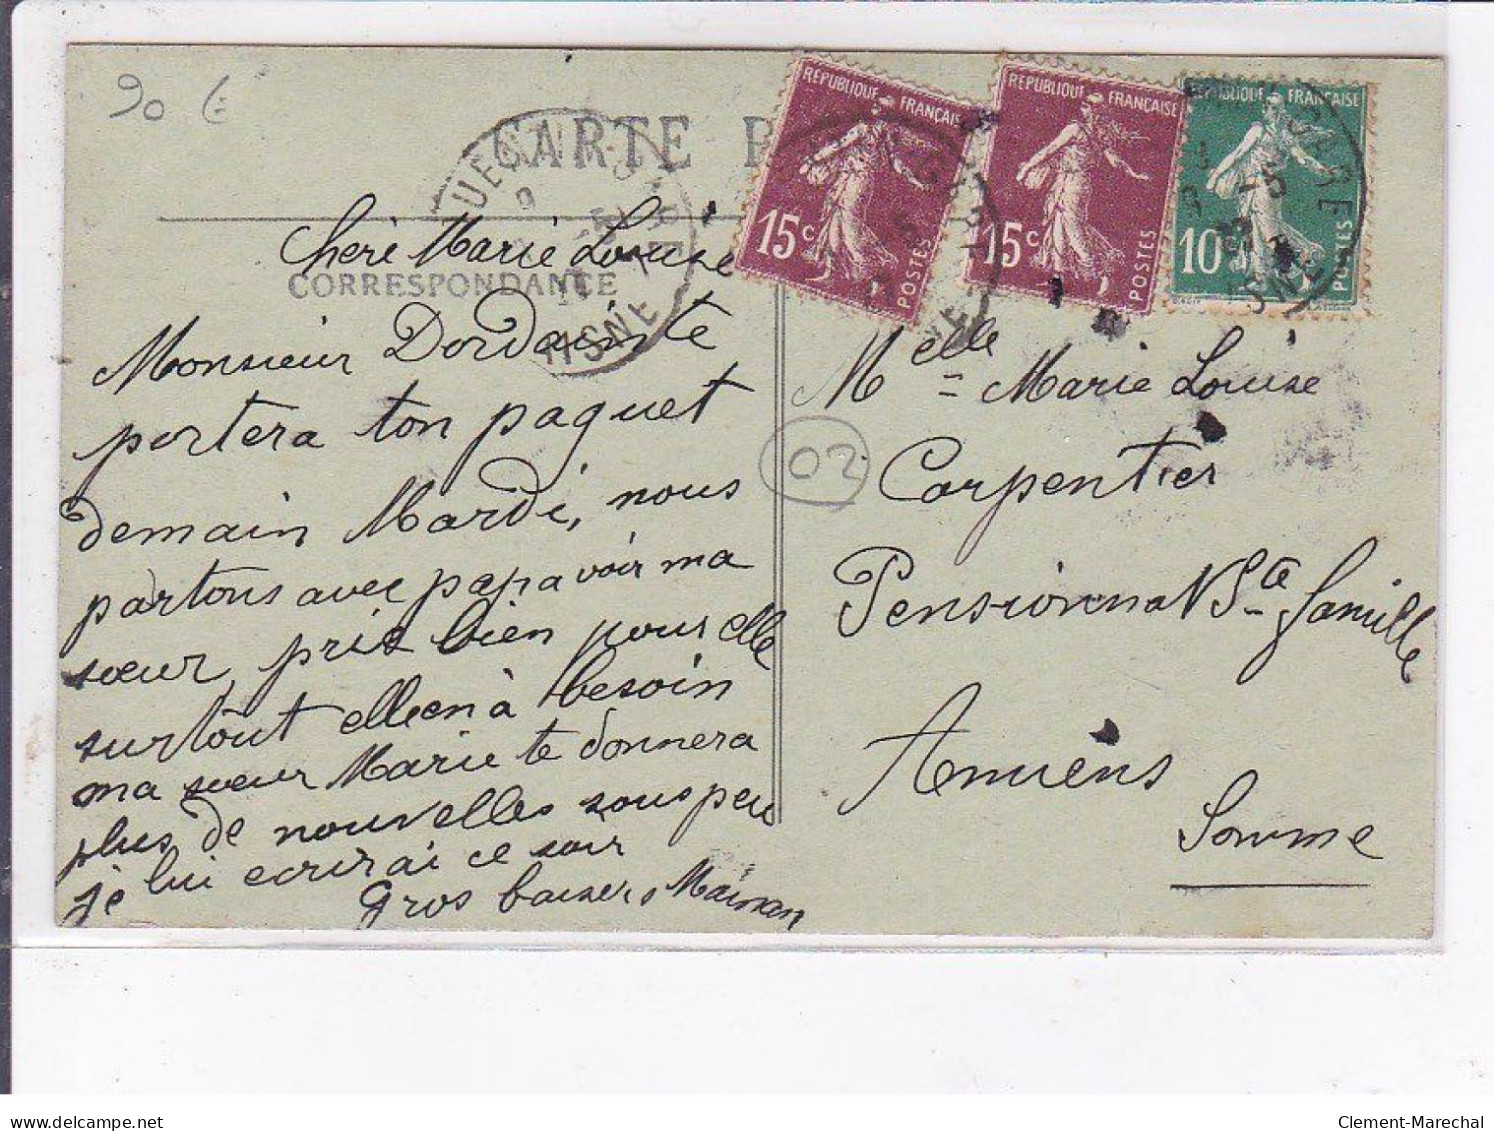 90 €
CARTE P
CORRESPONDANCE
RÉPUBLIQUE FRANÇAISE
15c
POSTES
RÉPUBLIQUE FRANÇAISE
15c
POSTES
RÉPUBLIQUE FRANÇAISE
10c
POSTES
AISNE
Cheré Marie Louise
Monsieur Dordainte
portera ton paquet
demain Mardi, nous
partons avec papa voir ma
sœur, prie bien pour elle
surtout elle en à besoin
ma sœur Marie te donnera
plus de nouvelles sous peu
je lui ecrirai ce soir
Gros baisers Maman
02
Melle = Marie Louise
Carpentier
Pensionnat Ste famille
Amiens
Somme
Clement-Marechal